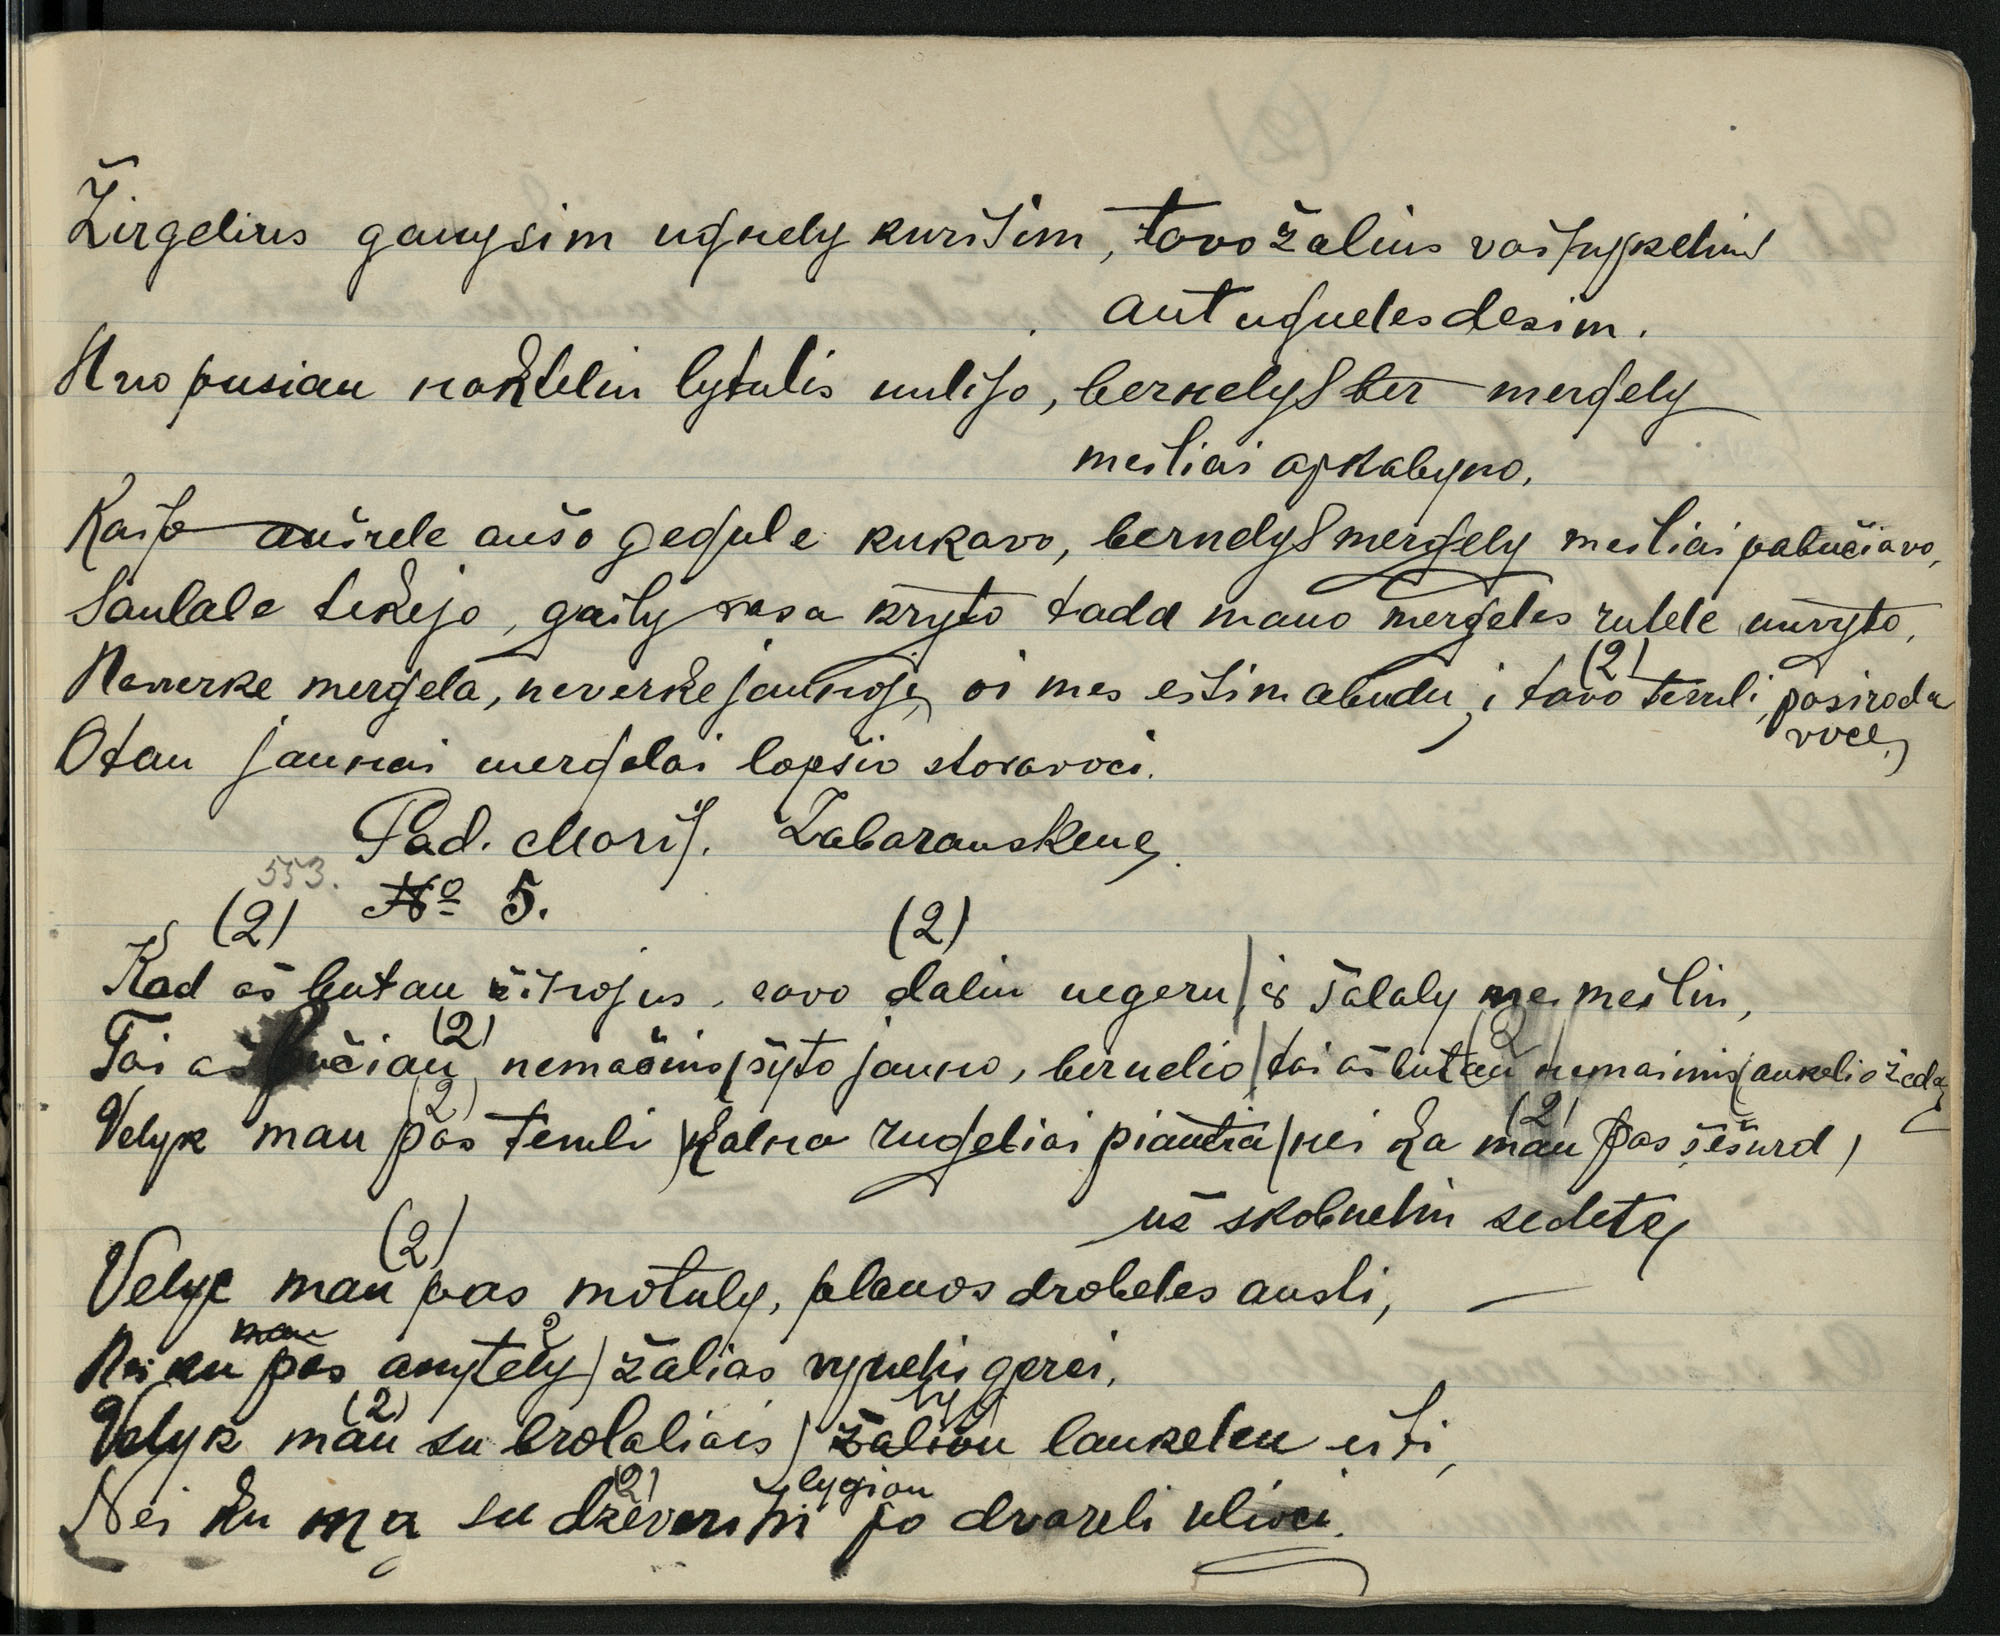 Žirgelius ganysim ugnely kuršim, tavo žalius vainykelius
ant ugneles desim.
Nuo pusiau naktelių lytulis nulijo, bernelys ber mergely
meiliai apkabyno,
Kaip aušrele aušo gegule kukavo, bernelys mergely meiliai pabučiavo,
Saulale tekejo, gaily rasa kryto tada mano mergeles rutele nuvyto,
Neverke mergela, neverke jaunoje, oi mes eisim abudu, i tavo tevuli, pasiroda
(2)
voce,
O tau jaunai mergelai lopšio stovavoci.
Pad. Morij. Zabarauskene,
553.
(2) № 5. (2)
Kad aš butau žinojus, savo dalių negeru / iš šalaly ne meilių,
Tai aš bučiau (2) nemačius / šyto jauno, bernelio / tai aš butau (2) nemainius / aukelio žeda
Velyk man (2) pas tevuli / kalno rugeliai piautia / nei ka man (2) pas šešurą,
už skobnelių sedete,
(2)
Velyc man pas motuly, plonos drobeles austi,
Nei ku pas anytely 2 / žalias vynelis gerci,
Velyk man (2) su brolaliais / žaliou laukelen eiti,
lygiou
Nei ku ma su dževerihi (2) po dvareli ulioci.